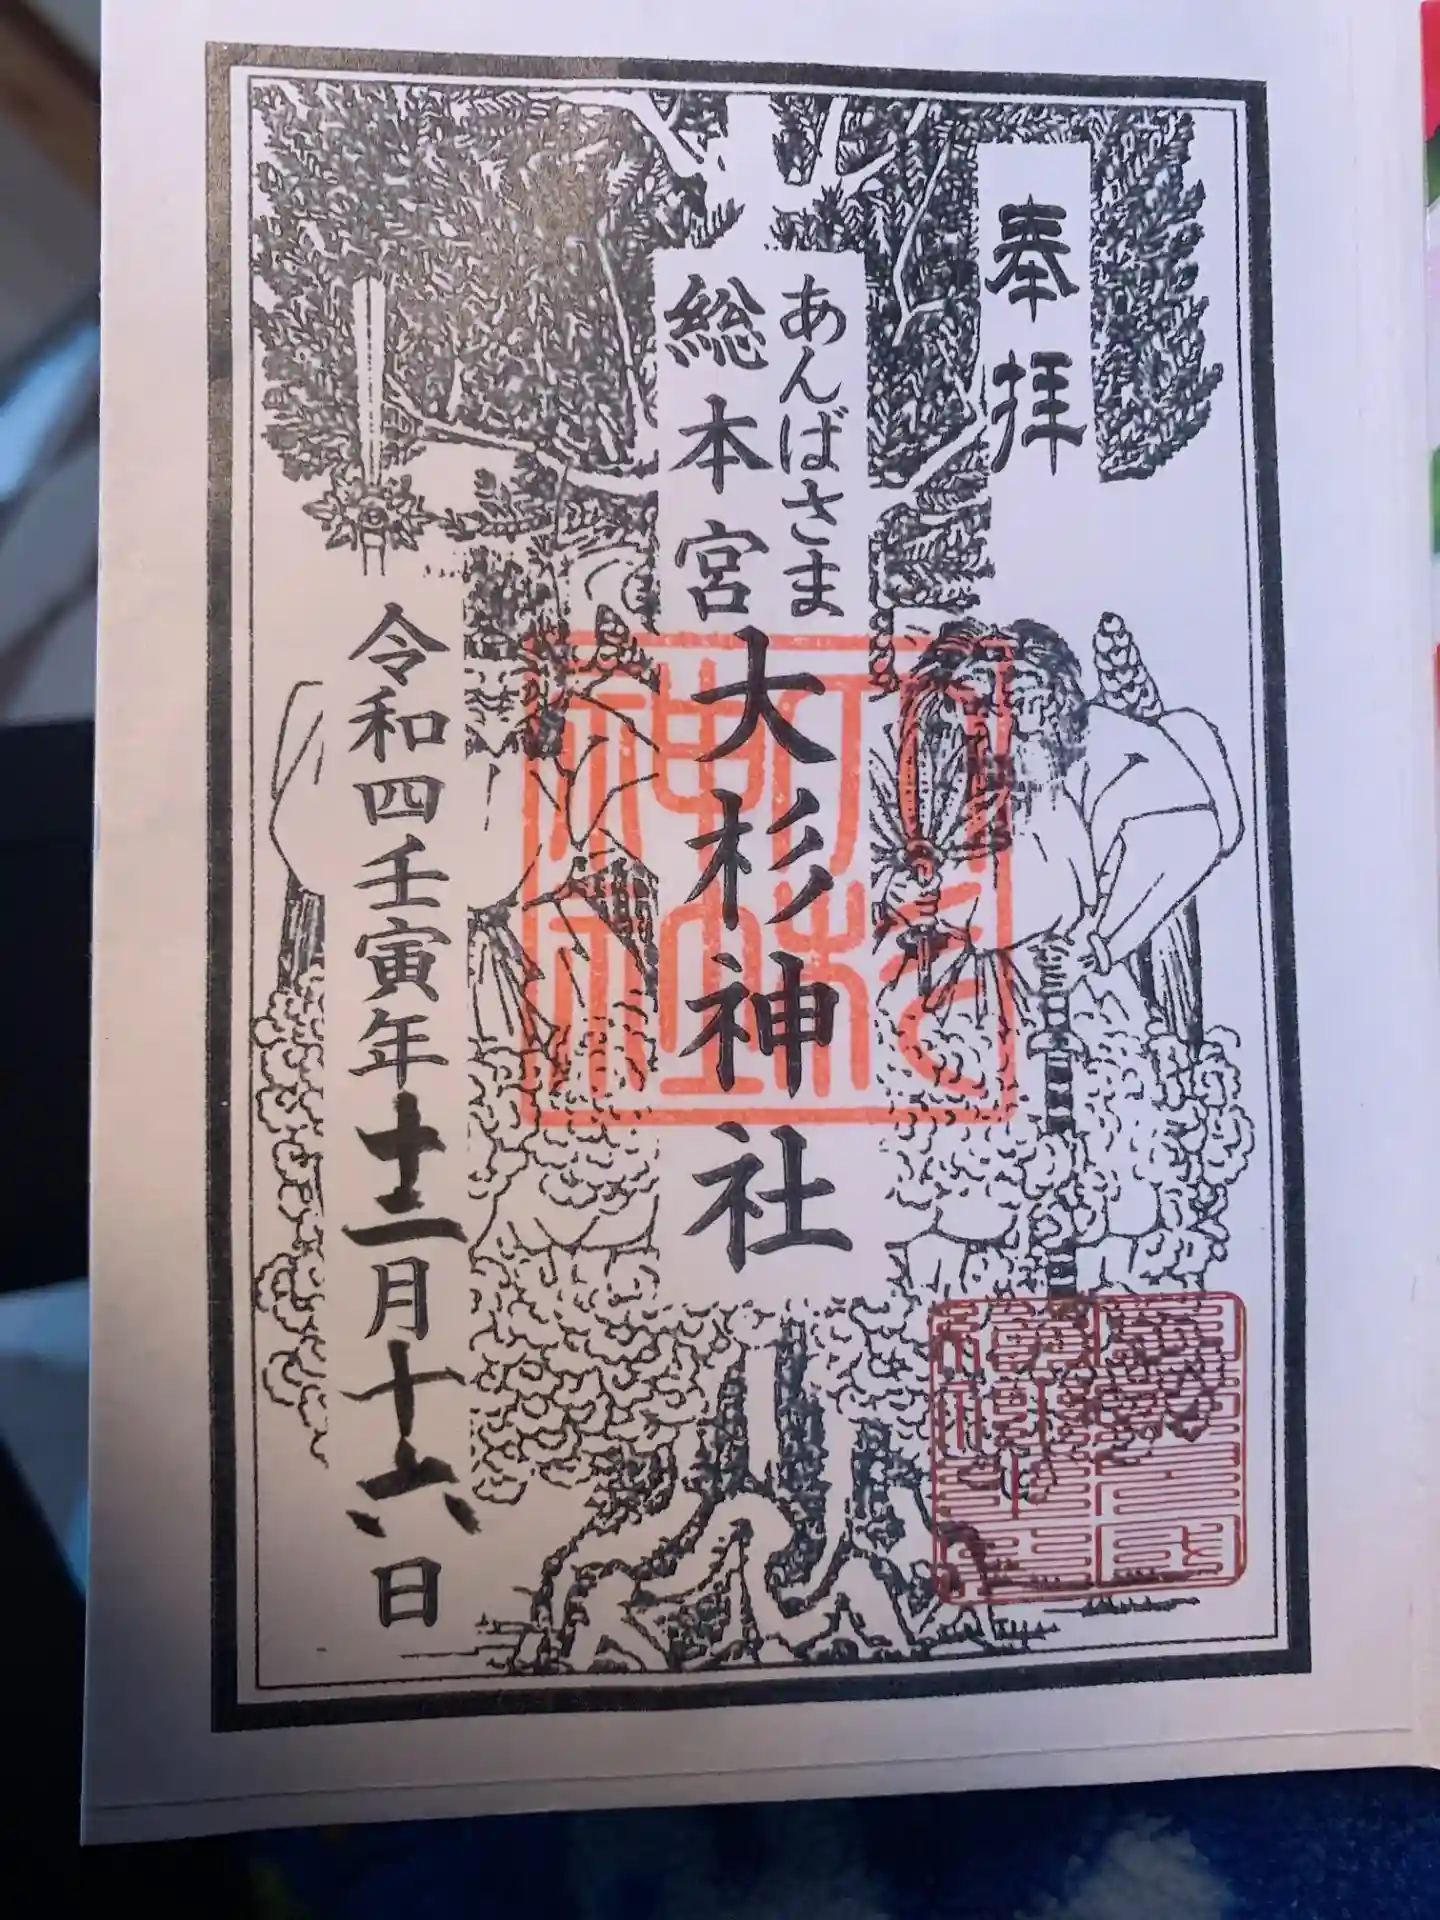 奉拝
あんばさま
総本宮
大杉神社
令和四壬寅年十二月十六日
大杉神社